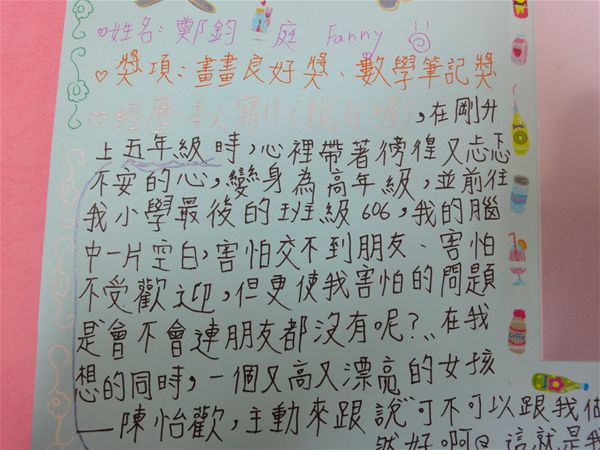 ♡姓名:鄭鈞庭 Fanny
♡獎項:畫畫良好獎、數學筆記獎
經歷:本人寫作,在剛升
上五年級時,心裡帶著徬徨又忐忑
不安的心,變身為高年級,並前往
我小學最後的班級606,我的腦
中一片空白,害怕交不到朋友、害怕
不受歡迎,但更使我害怕的問題
是"會不會連朋友都沒有呢?"在我
想的同時,一個又高又漂亮的女孩
—陳怡歡,主動來跟 說"可不可以跟我做
然好啊 這就是我